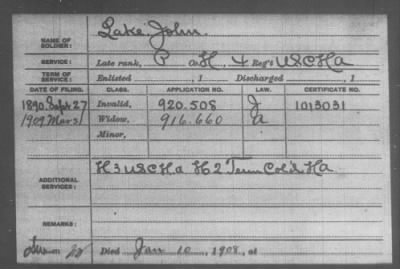 NAME OF SOLDIER: Lake, John.
SERVICE: Late rank, P Co. H, 4 Reg't U S C H a
TERM OF SERVICE: Enlisted , 1 Discharged , 1
DATE OF FILING. CLASS. APPLICATION NO. LAW. CERTIFICATE NO.
1890. Sept 27 Invalid, 920.508 J 1013031
1909 Mar 31 Widow, 916.660 a
Minor,
ADDITIONAL SERVICES: H 3 U S C H a H 2 Tenn Col'd H a
REMARKS:
Died Jan 10, 1908, at